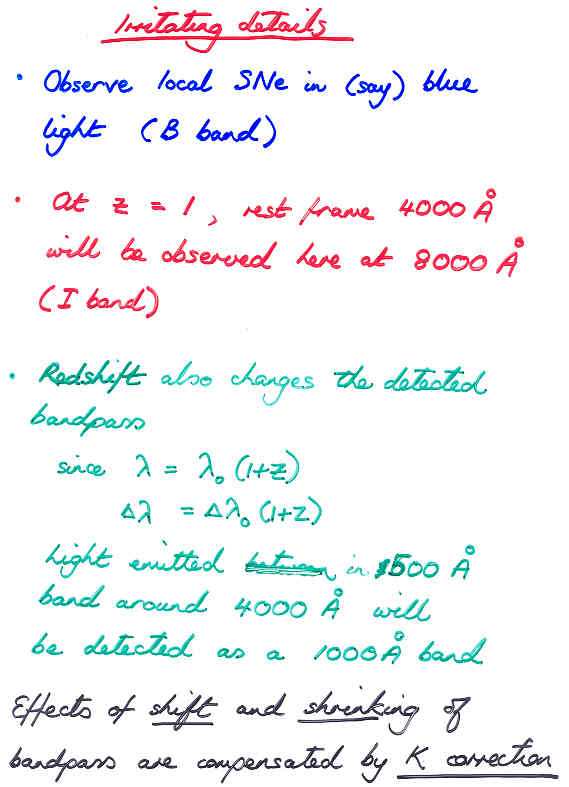 Irritating details
• Observe local SNe in (say) blue
light (B band)
• At z = 1, rest frame 4000 Å
will be observed here at 8000 Å
(I band)
• Redshift also changes the detected
bandpass
since λ = λ₀ (1+z)
Δλ = Δλ₀ (1+z)
Light emitted between in 500 Å
band around 4000 Å will
be detected as a 1000Å band
Effects of shift and shrinking of
bandpass are compensated by K correction